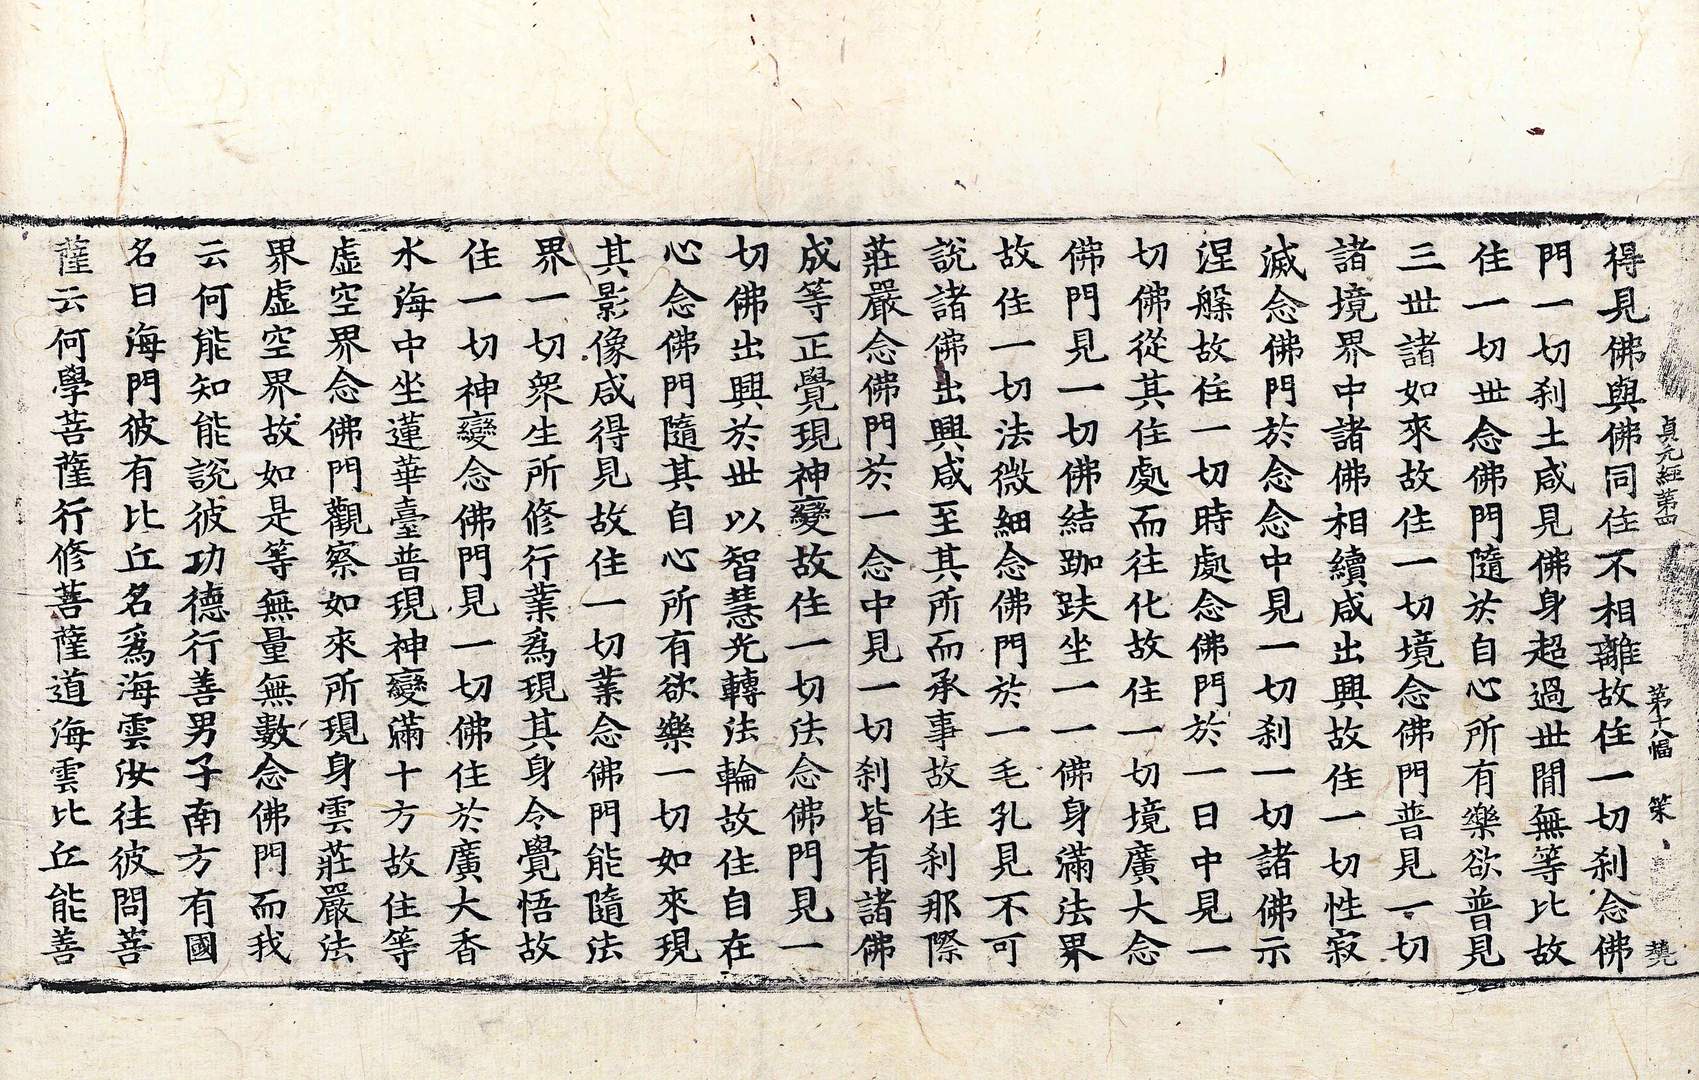 貞元經第四 第十八幅 策 㲠
得見佛與佛同住不相離故住一切刹念佛
門一切刹土咸見佛身超過世間無等比故
住一切世念佛門隨於自心所有樂欲普見
三世諸如來故住一切境念佛門普見一切
諸境界中諸佛相續咸出興故住一切性寂
滅念佛門於念念中見一切刹一切諸佛示
涅槃故住一切時處念佛門於一日中見一
切佛從其住處而往化故住一切境廣大念
佛門見一切佛結跏趺坐一一佛身滿法界
故住一切法微細念佛門於一毛孔見不可
說諸佛出興咸至其所而承事故住刹那際
莊嚴念佛門於一念中見一切刹皆有諸佛
成等正覺現神變故住一切法念佛門見一
切佛出興於世以智慧光轉法輪故住自在
心念佛門隨其自心所有欲樂一切如來現
其影像咸得見故住一切業念佛門能隨法
界一切衆生所修行業爲現其身令覺悟故
住一切神變念佛門見一切佛住於廣大香
水海中坐蓮華臺普現神變滿十方故住等
虛空界念佛門觀察如來所現身雲莊嚴法
界虛空界故如是等無量無數念佛門而我
云何能知能說彼功德行善男子南方有國
名曰海門彼有比丘名爲海雲汝往彼問菩
薩云何學菩薩行修菩薩道海雲比丘能善